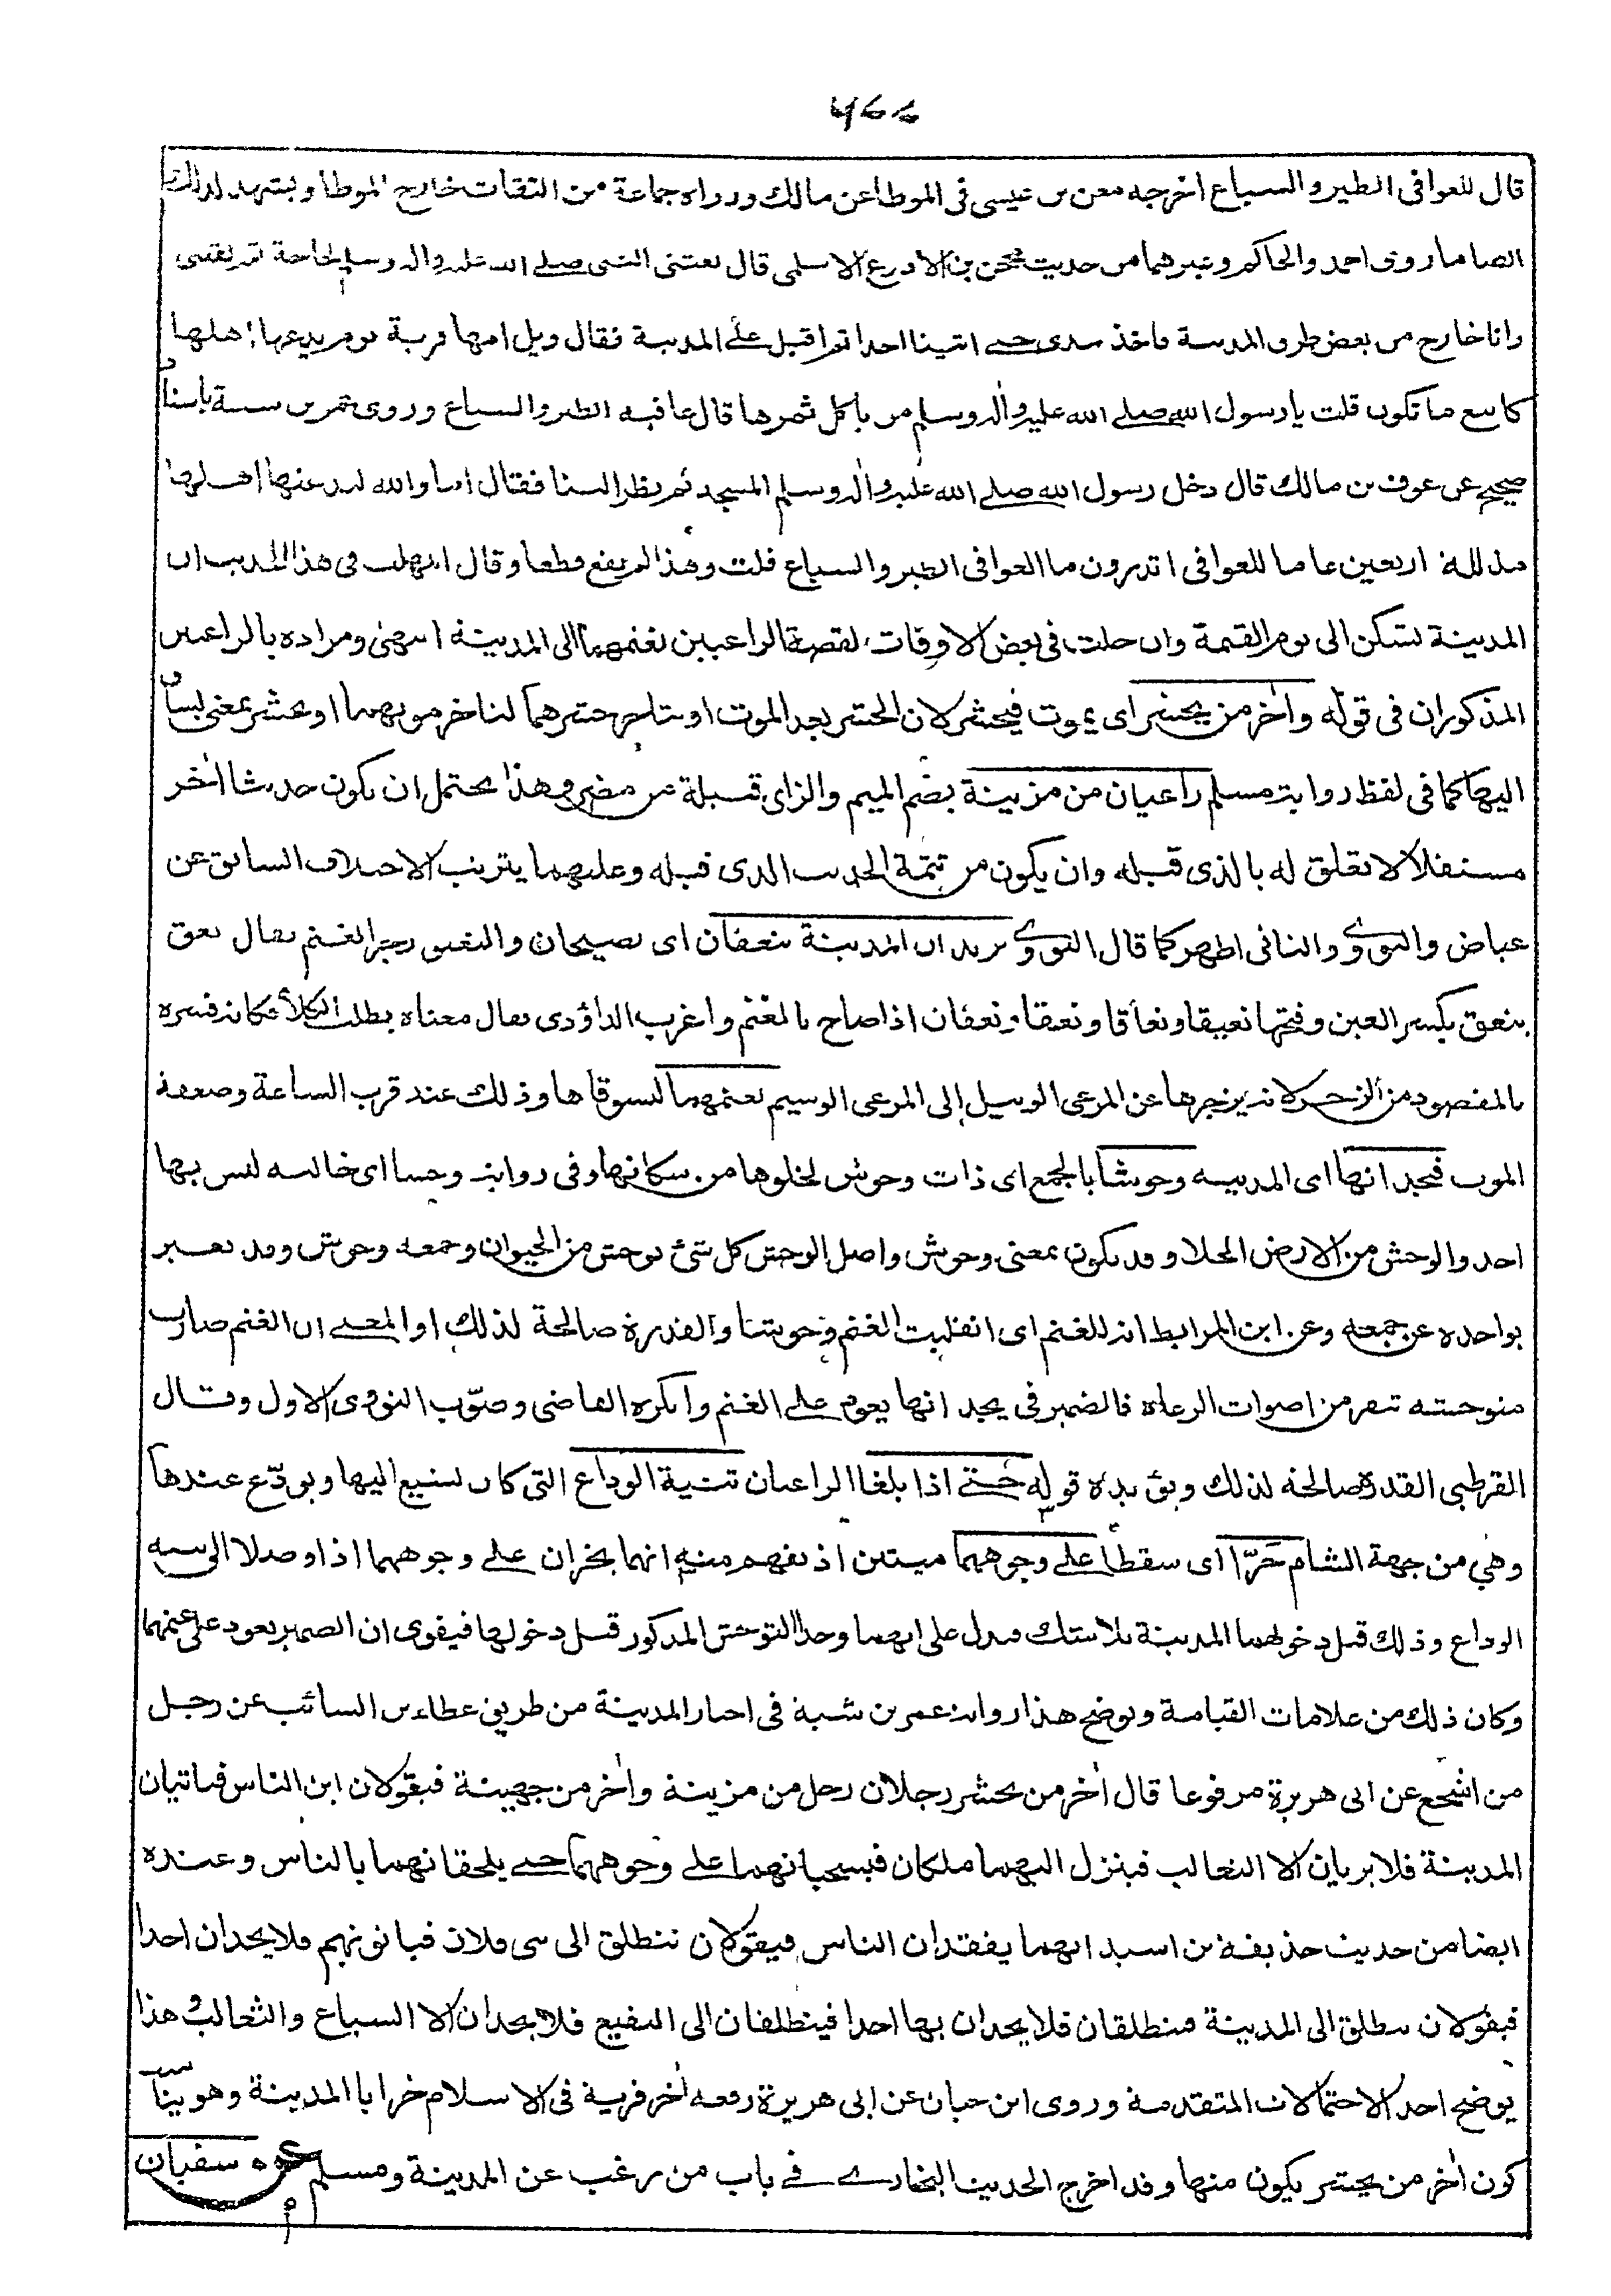 قال للعوافى الطير والسباع اخرجه معن بن عيسى فى الموطا عن مالك ورواه جماعة من الثقات خارج الموطا ويشهد لذلك
ايضا ما روى احمد والحاكم وغيرهما من حديث محجن بن الادرع الاسلمى قال بعثنى النبى صلے الله عليه واله وسلم لحاجة ثم لقينى
وانا خارج من بعض طرق المدينة فاخذ بيدى حتے اتينا احدا ثم اقبل علے المدينة فقال ويل امها قرية يوم يدعها اهلها
كاينع ما تكون قلت يا رسول الله صلے الله عليه واله وسلم من ياكل ثمرها قال عافية الطير والسباع وروى عمر بن شبة باسناد
صحيح عن عوف بن مالك قال دخل رسول الله صلے الله عليه واله وسلم المسجد ثم نظر الينا فقال اما والله ليدعنها اهلها
مذللة اربعين عاما للعوافى اتدرون ما العوافى الطير والسباع قلت وهذا لم يقع قطعا وقال المهلب فى هذا الحديث ان
المدينة تسكن الى يوم القيمة وان خلت فى بعض الاوقات لقصة الراعيين بغنمهما الى المدينة انتهى ومراده بالراعيين
المذكوران فى قوله واٰخر من يحشر اى يموت فيحشر لان الحشر بعد الموت او يتاخر حشرهما لتاخر موتهما او يحشر بمعنى يساق
اليها كما فى لفظ رواية مسلم راعيان من مزينة بضم الميم والزاى قبيلة من مضر وهذا يحتمل ان يكون حديثا اٰخر
مستقلا لا تعلق له بالذى قبله وان يكون من تتمة الحديث الذى قبله وعليهما يترتب الاختلاف السابق عن
عياض والنووے والثانى اظهر كما قال النووے يريدان المدينة ينعقان اى يصيحان والنعيق زجر الغنم يقال نعق
ينعق بكسر العين وفتحها نعيقا ونعاقا ونعقا ونعقان اذا صاح بالغنم واغرب الداؤدى فقال معناه يطلب الكلأ فكانه فسره
بالمقصود من الزجر لانه يزجرها عن المرعى الوبيل إلى المرعى الوسيم بغنمهما ليسوقاها وذلك عند قرب الساعة وصعقة
الموت فيجدانها اى المدينة وحوشا بالجمع اى ذات وحوش لخلوها من سكانها وفى رواية وحشا اى خالية ليس بها
احد والوحش من الارض الخلا وقد يكون بمعنى وحوش واصل الوحش كل شئ توحش من الحيوان وجمعه وحوش وقد يعبر
بواحده عن جمعه وعن ابن المرابط انه للغنم اى انقلبت الغنم وحوشا والقدرة صالحة لذلك او المعنے ان الغنم صارت
متوحشة تنفر من اصوات الرعاة فالضمير فى يجدانها يعود علے الغنم وانكره القاضى وصوّب النووى الاول وقال
القرطبى القدرة صالحة لذلك ويؤيده قوله حتے اذا بلغا الراعيان ثنية الوداع التى كان يشيع اليها ويودّع عندها
وهي من جهة الشام خرّا اى سقطا علے وجوههما ميتين اذ يفهم منه انهما يخران علے وجوههما اذا وصلا الى ثنية
الوداع وذلك قبل دخولهما المدينة بلا شك فيدل على انهما وجدا التوحش المذكور قبل دخولها فيقوى ان الضمير يعود على غنمهما
وكان ذلك من علامات القيامة ويوضح هذا رواية عمر بن شبة فى اخبار المدينة من طريق عطاء بن السائب عن رجل
من اشجع عن ابى هريرة مرفوعا قال اٰخر من يحشر رجلان رجل من مزينة واٰخر من جهينة فيقولان اين الناس فياتيان
المدينة فلا يريان الا الثعالب فينزل اليهما ملكان فيسحبانهما علے وجوههما حتے يلحقانهما بالناس وعنده
ايضا من حديث حذيفة بن اسيد انهما يفقدان الناس فيقولان ننطلق الى بنى فلان فياتونهم فلا يجدان احدا
فيقولان ننطلق الى المدينة فينطلقان فلا يجدان بها احدا فينطلقان الى البقيع فلا يجدان الا السباع والثعالب وهذا
يوضح احد الاحتمالات المتقدمة وروى ابن حبان عن ابى هريرة رفعه اٰخر قرية فى الاسلام خرابا المدينة وهو يناسب
كون اٰخر من يحشر يكون منها وقد اخرج الحديث البخارے فے باب من رغب عن المدينة ومسلم عن سفيان